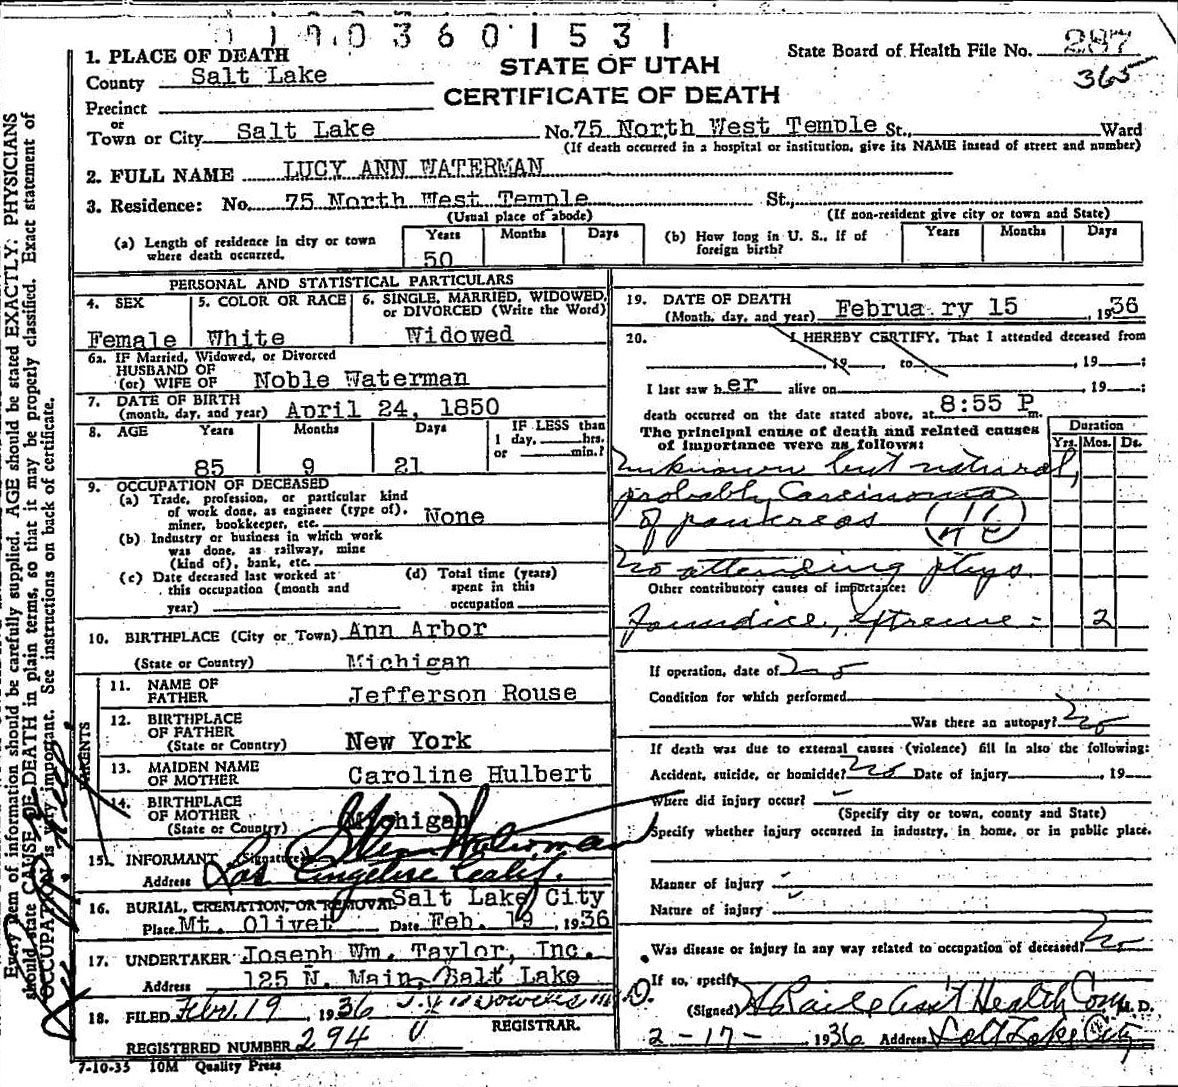 0 1 9 0 3 6 0 1 5 3 1
State Board of Health File No. 287
365
STATE OF UTAH
CERTIFICATE OF DEATH
1. PLACE OF DEATH
County Salt Lake
Precinct
or
Town or City Salt Lake No. 75 North West Temple St., Ward
(If death occurred in a hospital or institution, give its NAME insead of street and number)
2. FULL NAME LUCY ANN WATERMAN
3. Residence: No. 75 North West Temple St.,
(Usual place of abode) (If non-resident give city or town and State)
(a) Length of residence in city or town where death occurred. Years 50 Months Days
(b) How long in U. S., if of foreign birth? Years Months Days
PERSONAL AND STATISTICAL PARTICULARS
4. SEX Female
5. COLOR OR RACE White
6. SINGLE, MARRIED, WIDOWED, or DIVORCED (Write the Word) Widowed
6a. IF Married, Widowed, or Divorced
HUSBAND OF
(or) WIFE OF Noble Waterman
7. DATE OF BIRTH
(month, day, and year) April 24, 1850
8. AGE Years Months Days IF LESS than
1 day, hrs.
or min.?
85 9 21
9. OCCUPATION OF DECEASED
(a) Trade, profession, or particular kind
of work done, as engineer (type of),
miner, bookkeeper, etc. None
(b) Industry or business in which work
was done, as railway, mine
(kind of), bank, etc.
(c) Date deceased last worked at
this occupation (month and
year)
(d) Total time (years)
spent in this
occupation
10. BIRTHPLACE (City or Town) Ann Arbor
(State or Country) Michigan
PARENTS
11. NAME OF
FATHER Jefferson Rouse
12. BIRTHPLACE
OF FATHER
(State or Country) New York
13. MAIDEN NAME
OF MOTHER Caroline Hulbert
14. BIRTHPLACE
OF MOTHER
(State or Country) Michigan
15. INFORMANT (Signature) Waterman
Address Los Angelese Calif.
16. BURIAL, CREMATION, OR REMOVAL Salt Lake City
Place Mt. Olivet Date Feb. 19, 1936
17. UNDERTAKER Joseph Wm. Taylor, Inc.
Address 125 N. Main, Salt Lake
18. FILED Feb. 19 1936 M.D.
REGISTRAR.
REGISTERED NUMBER 294
7-10-35 10M Quality Press
19. DATE OF DEATH
(Month, day, and year) February 15, 1936
20. I HEREBY CERTIFY, That I attended deceased from
, 19 to , 19 ;
I last saw her alive on , 19 ;
death occurred on the date stated above, at 8:55 P m.
The principal cause of death and related causes
of importance were as follows:
Duration
Yrs. Mos. Ds.
Unknown but natural,
probably Carcinoma
of pankreas
No attending phys.
Other contributory causes of importance:
Jaundice, extreme - 2
If operation, date of no
Condition for which performed
Was there an autopsy? no
If death was due to external causes (violence) fill in also the following:
Accident, suicide, or homicide? no Date of injury , 19
Where did injury occur?
(Specify city or town, county and State)
Specify whether injury occurred in industry, in home, or in public place.
Manner of injury
Nature of injury
Was disease or injury in any way related to occupation of deceased? no
If so, specify
(Signed) Ass't Health Com, M. D.
2-17- 1936 Address Salt Lake City
Every item of information should be carefully supplied. AGE should be stated EXACTLY. PHYSICIANS
should state CAUSE OF DEATH in plain terms, so that it may be properly classified. Exact statement of
OCCUPATION is very important. See instructions on back of certificate.